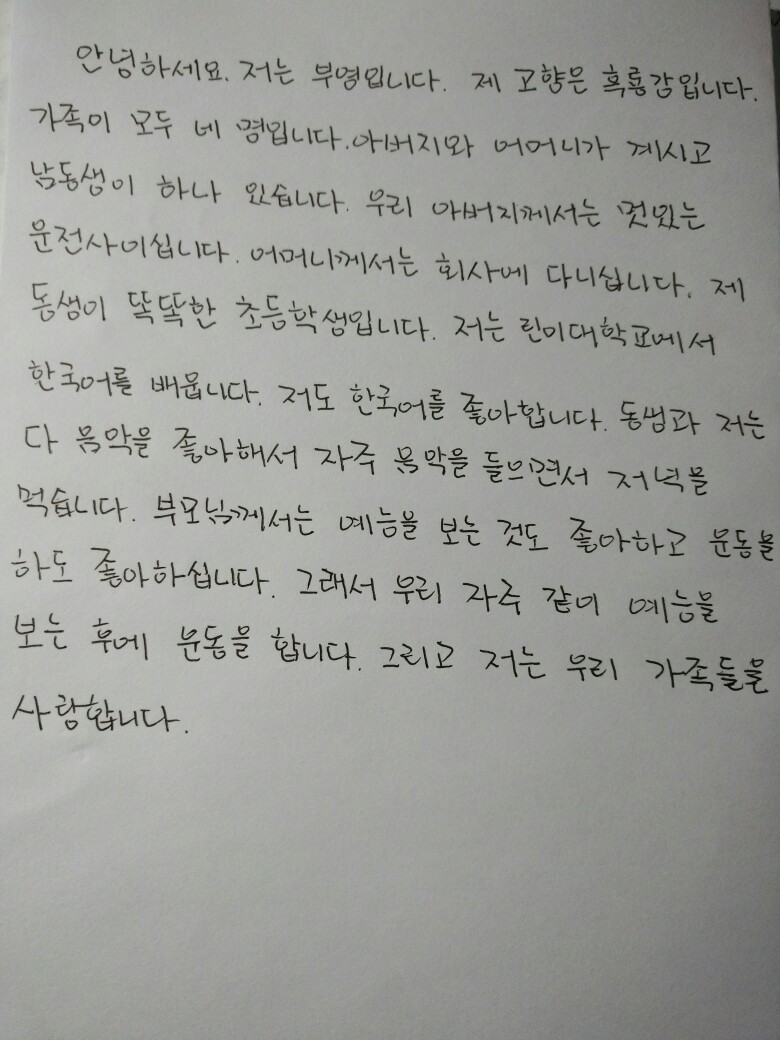 안녕하세요. 저는 부영입니다. 제 고향은 흑룡강입니다.
가족이 모두 네 명입니다. 아버지와 어머니가 계시고
남동생이 하나 있습니다. 우리 아버지께서는 멋있는
운전사이십니다. 어머니께서는 회사에 다니십니다. 제
동생이 똑똑한 초등학생입니다. 저는 린이대학교에서
한국어를 배웁니다. 저도 한국어를 좋아합니다. 동생과 저는
다 음악을 좋아해서 자주 음악을 들으면서 저녁을
먹습니다. 부모님께서는 예능을 보는 것도 좋아하고 운동을
하도 좋아하십니다. 그래서 우리 자주 같이 예능을
보는 후에 운동을 합니다. 그리고 저는 우리 가족들을
사랑합니다.